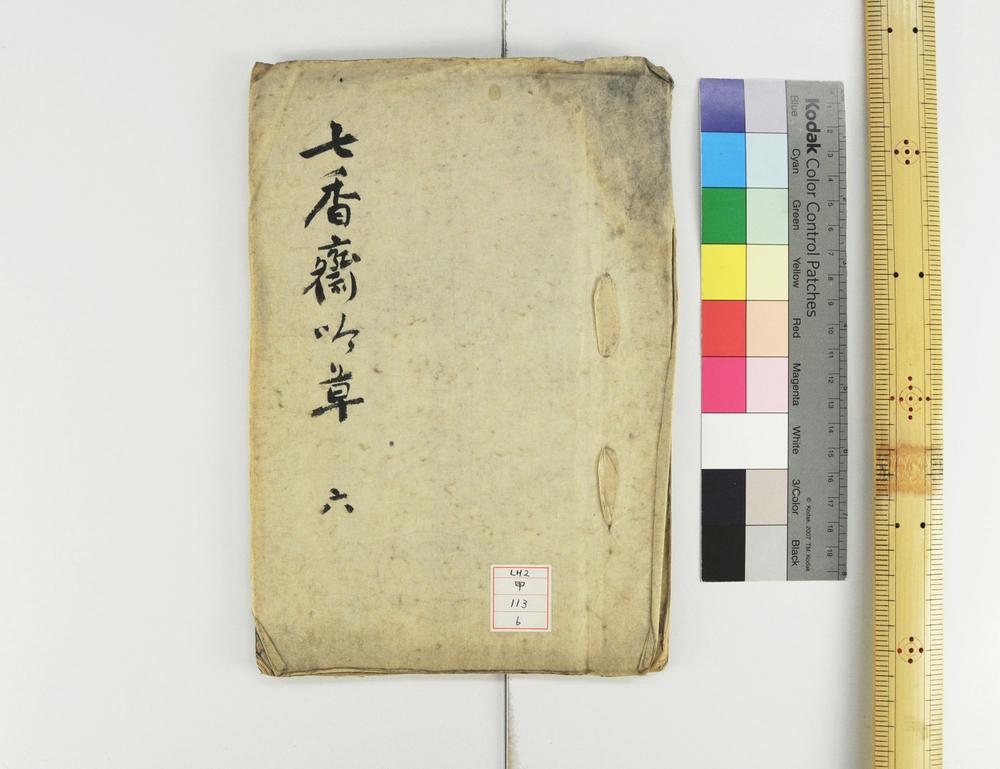 七香齋吟草 六
LH2
甲
113
6
Kodak Color Control Patches
Blue
Cyan
Green
Yellow
Red
Magenta
White
3/Color
Black
© Kodak, 2007 TM: Kodak
1
2
3
4
5
6
7
8
9
10
11
12
13
14
15
16
17
18
19